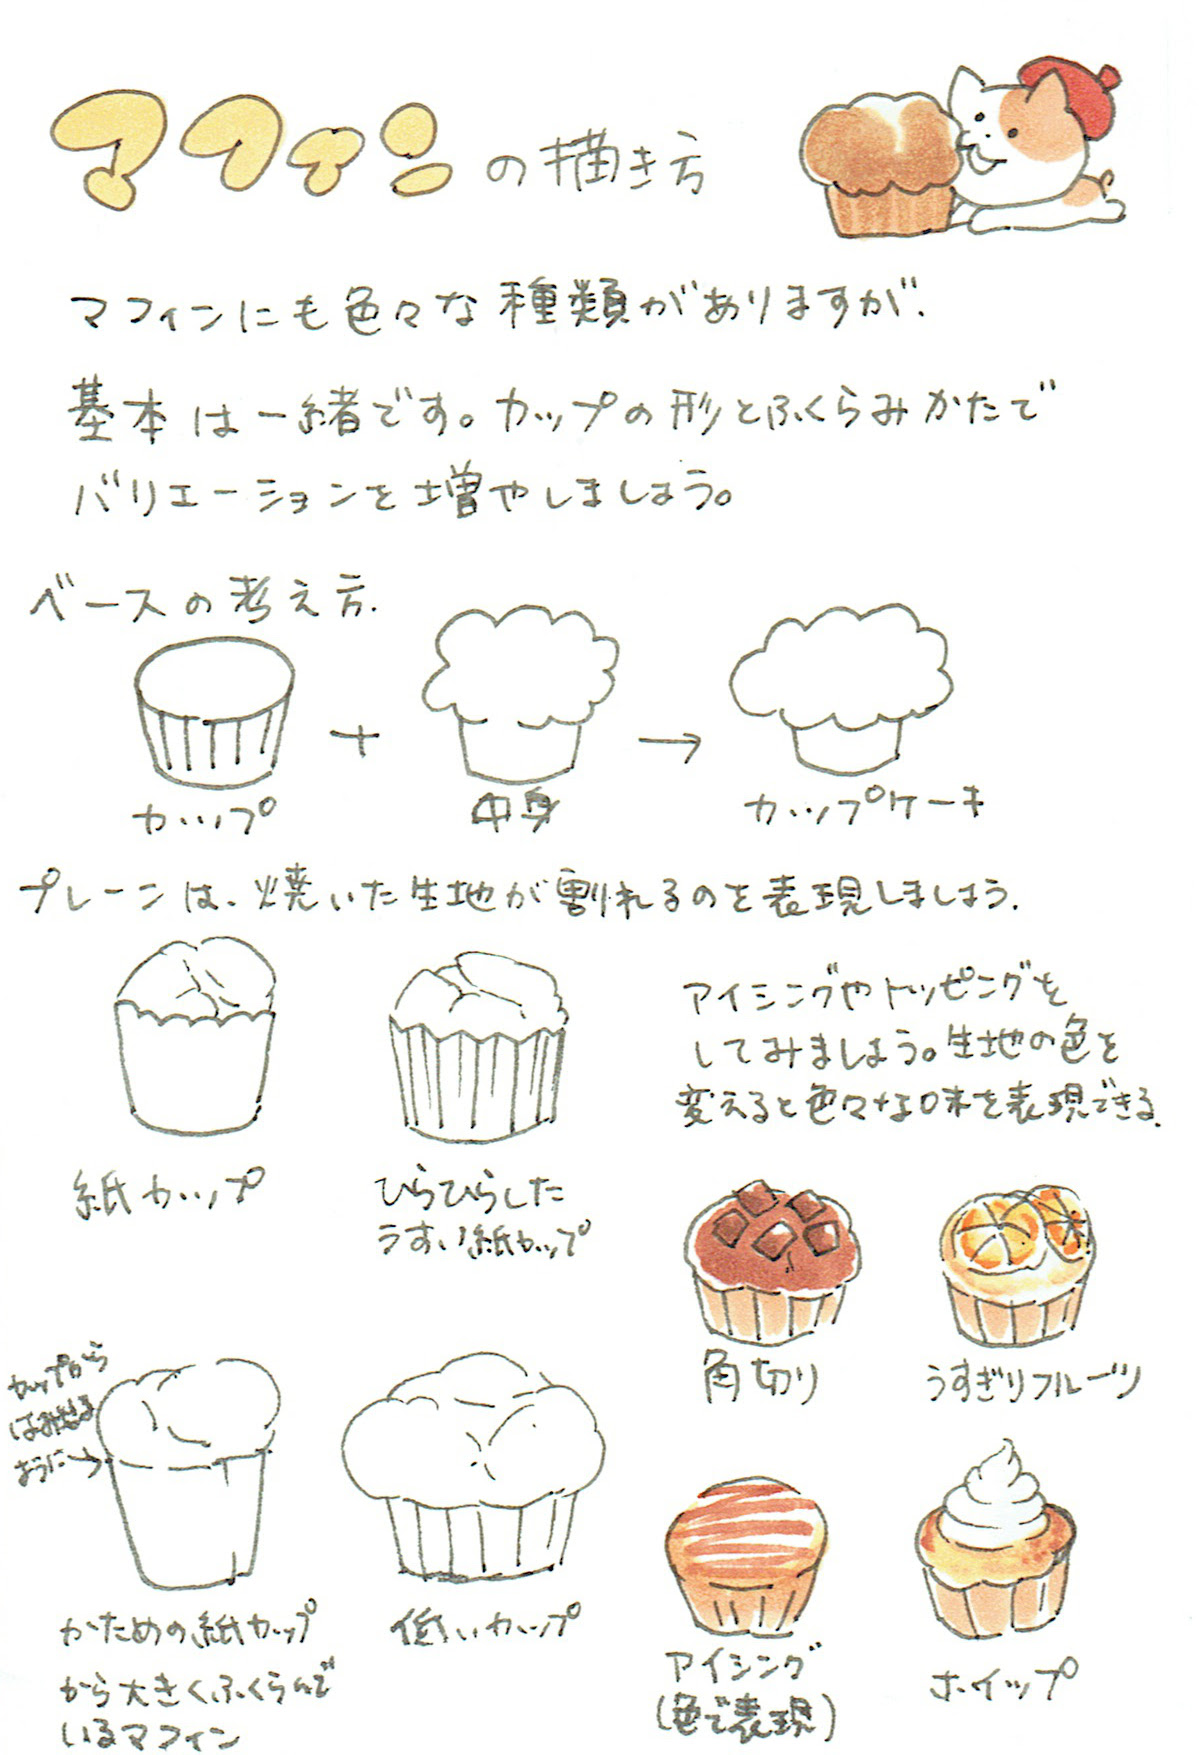 マフィンの描き方
マフィンにも色々な種類がありますが、
基本は一緒です。カップの形とふくらみかたで
バリエーションを増やしましょう。
ベースの考え方.
+
→
カップ
中身
カップケーキ
プレーンは、焼いた生地が割れるのを表現しましょう.
アイシングやトッピングを
してみましょう。生地の色を
変えると色々な味を表現できる.
紙カップ
ひらひらした
うすい紙カップ
角切り
うすぎりフルーツ
カップから
はみ出る
ように→
かための紙カップ
から大きくふくらんで
いるマフィン
低いカップ
アイシング
(色で表現)
ホイップ